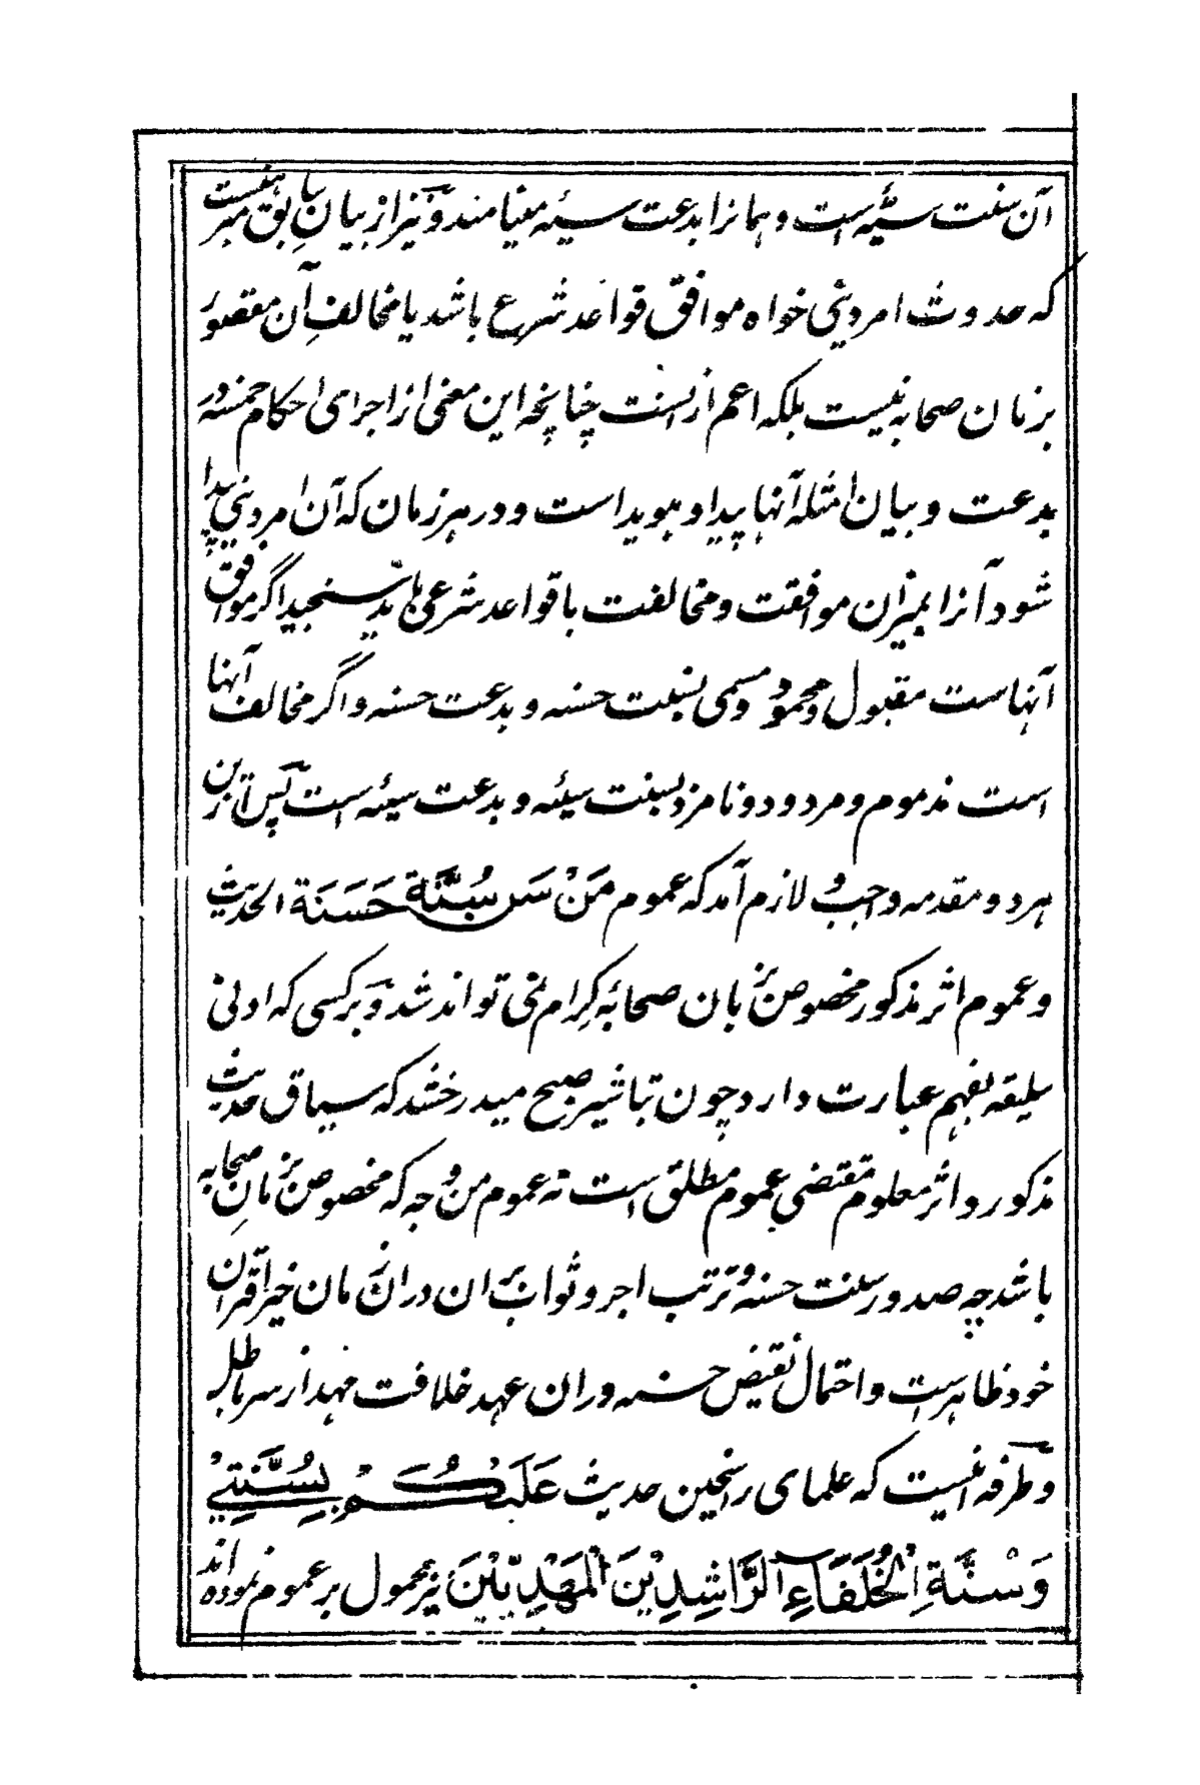 آن سنت سیّئه است و همانرا بدعت سیئه مینامند و نیز از بیانِ سابق مبرهنست
که حدوث امر دینی خواه موافق قواعد شرع باشد یا مخالفِ آن مقصور
بزمان صحابه نیست بلکه اعم ازنست چنانچه این معنی از اجرای احکام خمسه در
بدعت و بیان امثله آنها پیدا و هویداست و در هر زمان که آن امر دینی پیدا
شود آنرا بمیزان موافقت و مخالفت با قواعد شرعی باید سنجید اگر موافق
آنهاست مقبول و محمود و مسمی بسنت حسنه و بدعت حسنه و اگر مخالف آنها
است مذموم و مردود و نامزد بسنت سیئه و بدعت سیئه است پس ازین
هر دو مقدمه واجب لازم آمد که عموم مَنْ سَنَّ سُنَّةً حَسَنَةً الحدیث
و عموم اثر مذکور مخصوص بزمان صحابهٔ کِرام نمی تواند شد و بر کسی که ادنی
سلیقه بفهم عبارت دارد چون تباشیر صبح میدرخشد که سیاق حدیث
مذکور و اثر معلوم مقتضی عموم مطلق است نه عموم من وجه که مخصوص بزمانِ صحابه
باشد چه صدور سنت حسنه و ترتب اجر و ثواب بران دران زمان خیر اقتران
خود ظاهرست و احتمال نقیض حسنه دران عهد خلافت مهد از سر باطل
و طرفه اینست که علمای راسخین حدیث عَلَیْکُمْ بِسُنَّتِیْ
وَسُنَّةِ الْخُلَفَاءِ الرَّاشِدِیْنَ الْمَهْدِیِّیْنَ نیز محمول بر عموم نموده اند